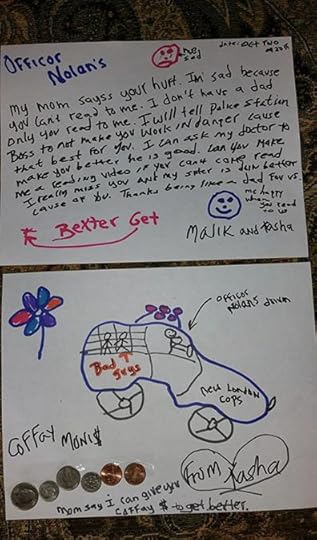 Officor
Nolan's
me
sad
date: Oct Two
My mom sayss your hurt. Im sad because
you cant read to me. I don't have a dad
only you read to me. I will tell Police Station
Boss to not make you work in danger cause
that best for you. I can ask my doctor to
make you better he is good. Can you make
me a reading video if you cant come read
I really miss you and my sister is dum better
cause of you. Thanks being like a dad for us.
me happy
when
you read
to us
Better Get
Malik and Tasha
officor
Nolans drivin
Bad
guys
New London
cops
Coffay Moni$
From Tasha
mom say I can give you
coffay $ to get better.